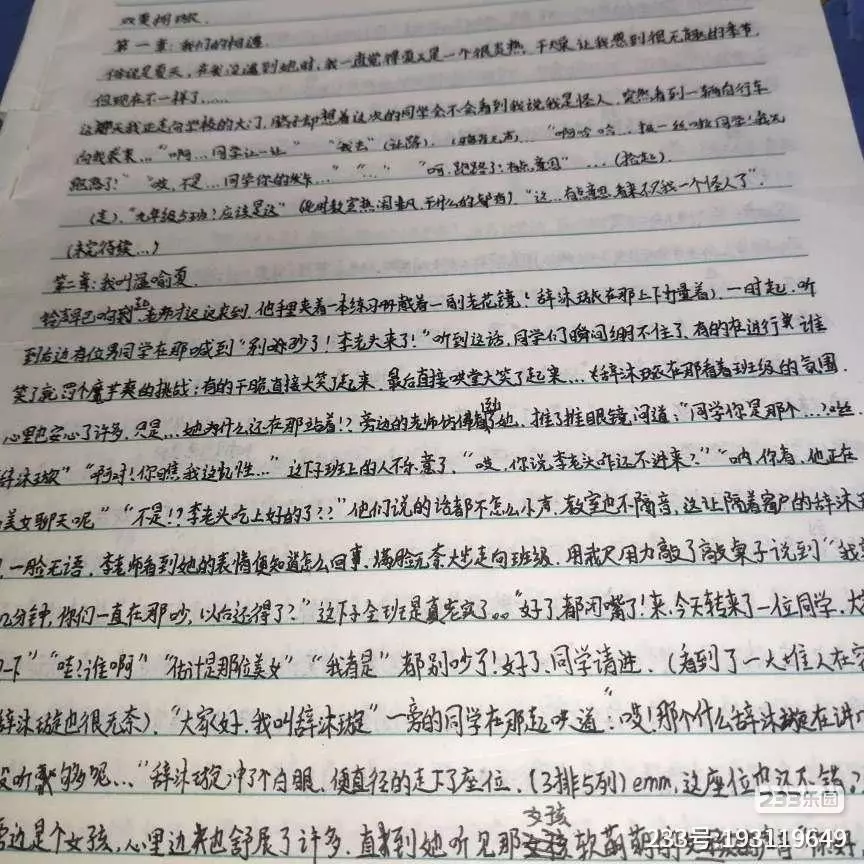 双更
第一章:我们的相遇.
俗说是夏天,在我没遇到她时,我一直觉得夏天是一个很炎热,干燥让我感到很无趣的季节.
但现在不一样了......
这天我正走向学校的大门,脑子却想着这次的同学会不会看到我说我是怪人,突然看到一辆自行车
向我来"啊...同学让一让""我去"(让路).."啊哈哈...同学!我先
跑路了!""哎,不是...同学你的...""...""呵,跑路了?有点意思"...(捡起).
(走)."九年级5班?应该是这"(此时教室热闹,干什么的都有)."这..有点意思,看来不只我一个怪人了".
(未完待续...)
第二章:我叫温喻夏.
铃声早已响到,老师才迟迟来到,他手里夹着一本练习册戴着一副老花镜!辞沐璇在那上下打量着).一时起.听
到右边有位男同学在那喊到"别吵吵了!李老头来了!"听到这话,同学们瞬间绷不住了,有的在进行谁
笑了就罚个魔芋爽的挑战;有的干脆直接大笑了起来,最后直接哄堂大笑了起来...(辞沐璇在那看着班级的氛围.
心里也安心了许多,只是...她为什么还在那站着!?旁边的老师仿佛看到她,推了推眼镜问道:"同学你是那个...?
辞沐璇""啊对!你瞧我这记性..."这下子班上的人不乐意了."哎,你说李老头咋还不进来?""呐,你看,他正在
美女聊天呢""不是!?李老头吃上好的了??"他们说的话都不怎么小声,教室也不隔音,这让隔着窗户的辞沐
,一脸无语,李老师看到她的表情便知道怎么回事,满脸无奈大步走向班级.用戒尺用力敲了敲桌子说到"我
分钟,你们一直在那吵,以后还得了?"这下子全班是真老实了.."好了,都闭嘴了!来,今天转来了一位同学,大
一下""哇!谁啊""估计是那位美女""我看是"都别吵了!好了、同学请进.(看到了一大堆人在
辞沐璇也很无奈)."大家好,我叫辞沐璇"一旁的同学在那起哄道:"哎!那个什么辞沐璇在讲
没听够呢..."辞沐璇冲了个白眼,便直径的走下了座位.(3排5列)emm,这座位也还不错?
旁边是个女孩,心里边也舒展了许多.直到她听见那女孩软萌
233乐园
233号:193119649